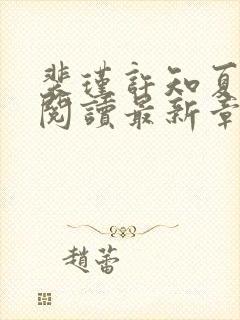 裴瑾許知夏
閱讀最新章
趙蕾